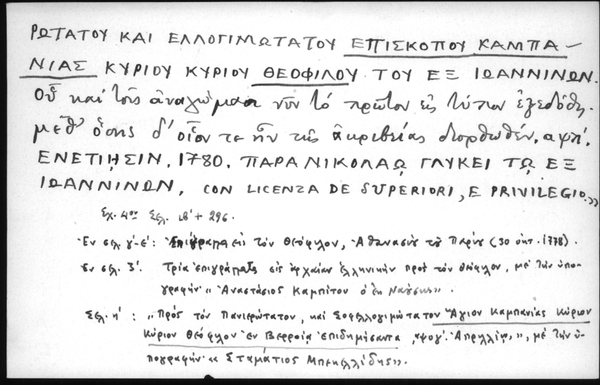 ΡΩΤΑΤΟΥ ΚΑΙ ΕΛΛΟΓΙΜΩΤΑΤΟΥ ΕΠΙΣΚΟΠΟΥ ΚΑΜΠΑ-
ΝΙΑΣ ΚΥΡΙΟΥ ΚΥΡΙΟΥ ΘΕΟΦΙΛΟΥ ΤΟΥ ΕΞ ΙΩΑΝΝΙΝΩΝ.
Οὗ καὶ τοῖς ἀναλώμασι νῦν τὸ πρῶτον εἰς τύπον ἐξεδόθη.
μεθ' ὅσης δ' οἷόν τε ἦν τῆς ἀκριβείας διορθωθέν. αψπ'.
ΕΝΕΤΙΗΣΙΝ, 1780. ΠΑΡΑ ΝΙΚΟΛΑΩ ΓΛΥΚΕΙ ΤΩ ΕΞ
ΙΩΑΝΝΙΝΩΝ, CON LICENZA DE SUPERIORI, E PRIVILEGIO.»
Σχ. 4ον Σελ. ιβ' + 296.
Ἐν σελ. γ'-ε': Ἐπίγραμμα εἰς τὸν Θεόφιλον, Ἀθανασίου τοῦ Παρίου (30 ὀκτ. 1778).
Ἐν σελ. ζ': Τρία ἐπιγράμματα εἰς ἀρχαίαν ἑλληνικὴν πρὸς τὸν Θεόφιλον, μὲ τὴν ὑπο-
γραφὴν "Ἀναστάσιος Καμπίτου ὁ ἐκ Ναούσης".
Σελ. η': "Πρὸς τὸν Πανιερώτατον, καὶ Σοφολλογιμώτατον Ἅγιον Καμπανίας Κύριον
Κύριον Θεόφιλον ἐν Βερροίᾳ ἐπιδημήσαντα, Ἀπριλλίῳ,", μὲ τὴν ὑ-
πογραφὴν "Σταμάτιος Μπεκελλίδης".